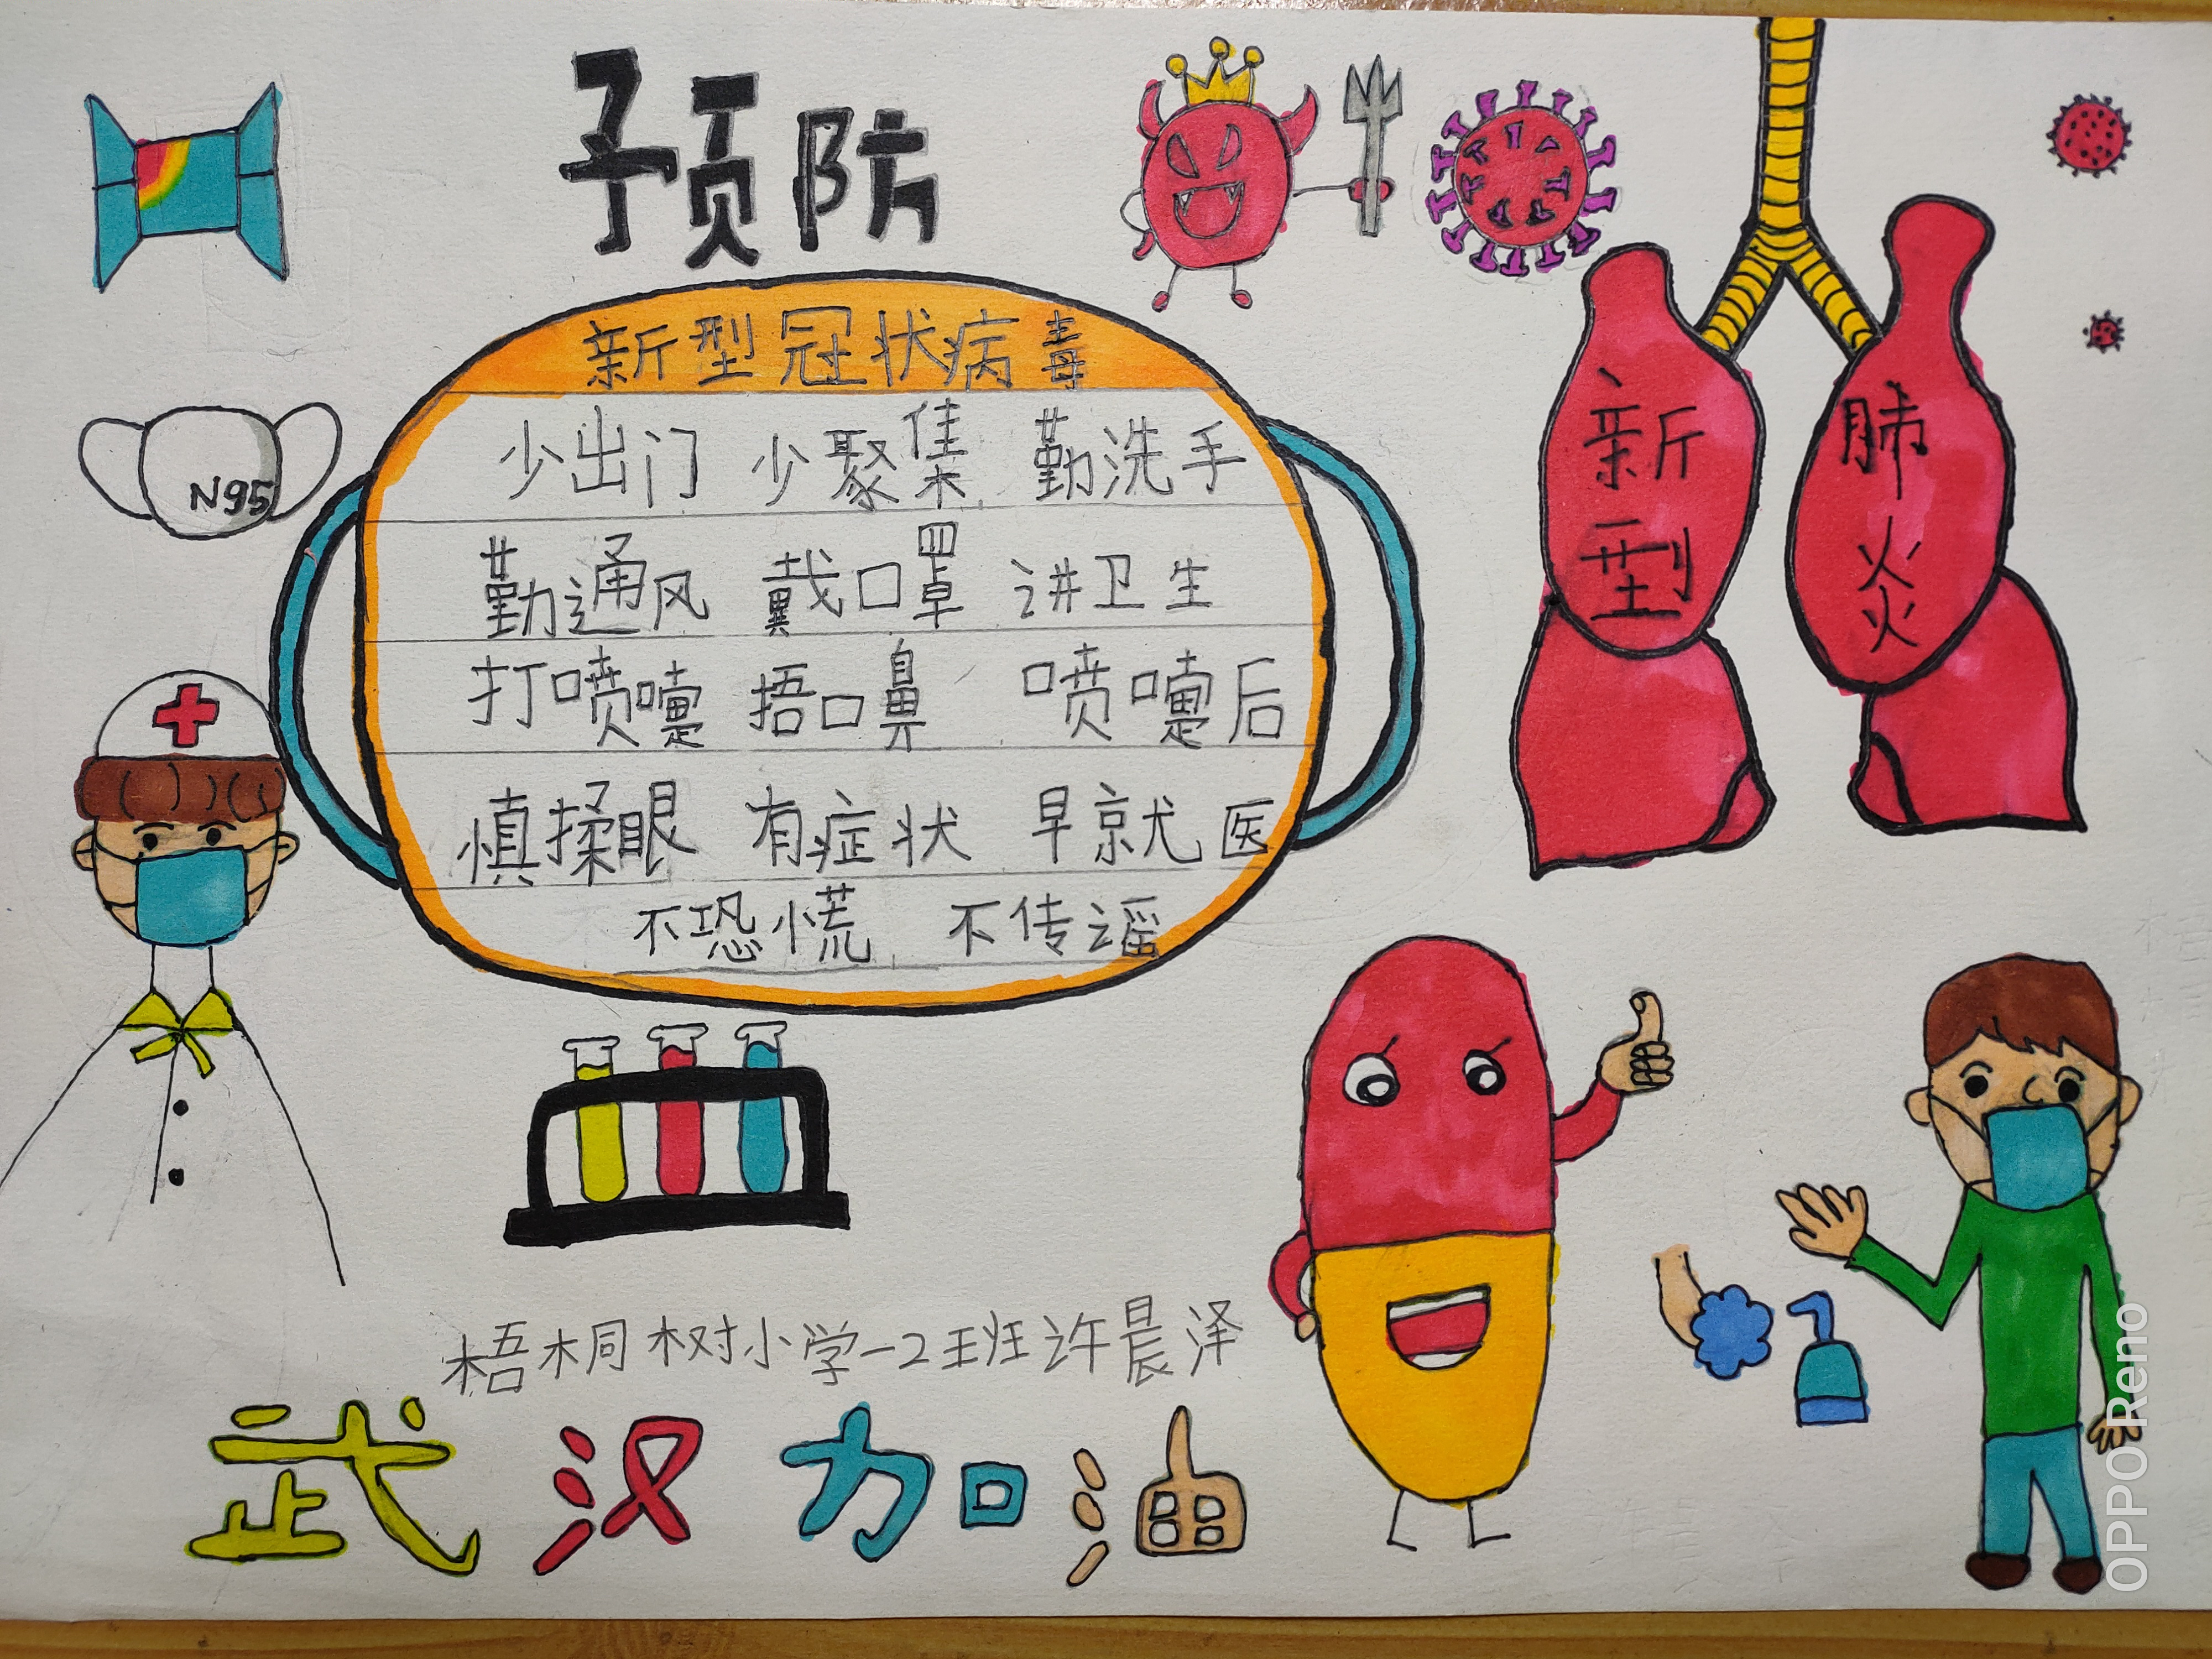 预防
新型冠状病毒
少出门 少聚集 勤洗手
勤通风 戴口罩 讲卫生
打喷嚏 捂口鼻 喷嚏后
慎揉眼 有症状 早就医
不恐慌 不传谣
N95
新型
肺炎
梧桐树小学一2班许晨泽
武汉加油
OPPO Reno